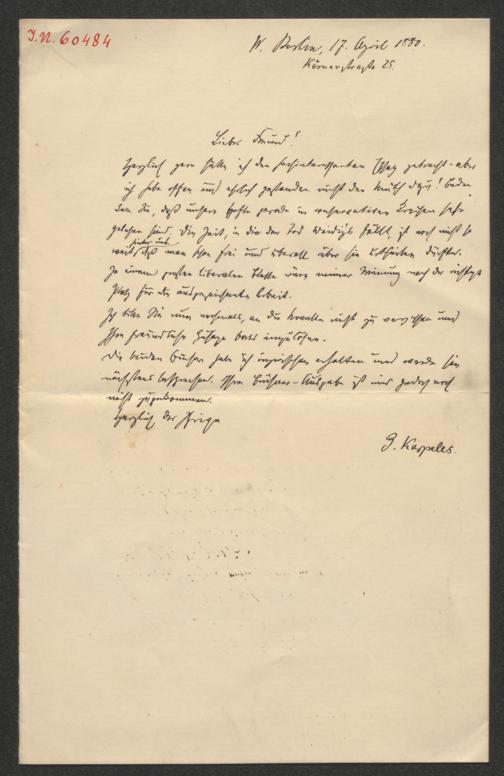 I.N. 60484
W. Berlin, 17. April 1880.
Körnerstraße 25.
Lieber Freund!
Herzlich gern hätte ich den hochinteressanten Essay gebracht – aber
ich habe offen und ehrlich gestanden nicht den Muth dazu! Beden-
ken Sie, daß unsere Hefte gerade in conservativen Kreisen sehr
gelesen sind, die Zeit, in die der Tod Weidigs fällt, ist noch nicht so
weit hinter uns, daß man schon frei und überall über sie urtheilen dürfte.
In einem großen liberalen Blatte wäre meiner Meinung nach der richtige
Platz für die ausgezeichnete Arbeit.
Ich bitte Sie nun nochmals, an die Novelle nicht zu vergessen und
Ihre freundliche Zusage bald einzulösen.
Die beiden Bücher habe ich inzwischen erhalten und werde sie
nächstens besprechen. Ihre Büchner-Ausgabe ist uns jedoch noch
nicht zugekommen.
Herzlich der Ihrige
G. Karpeles.